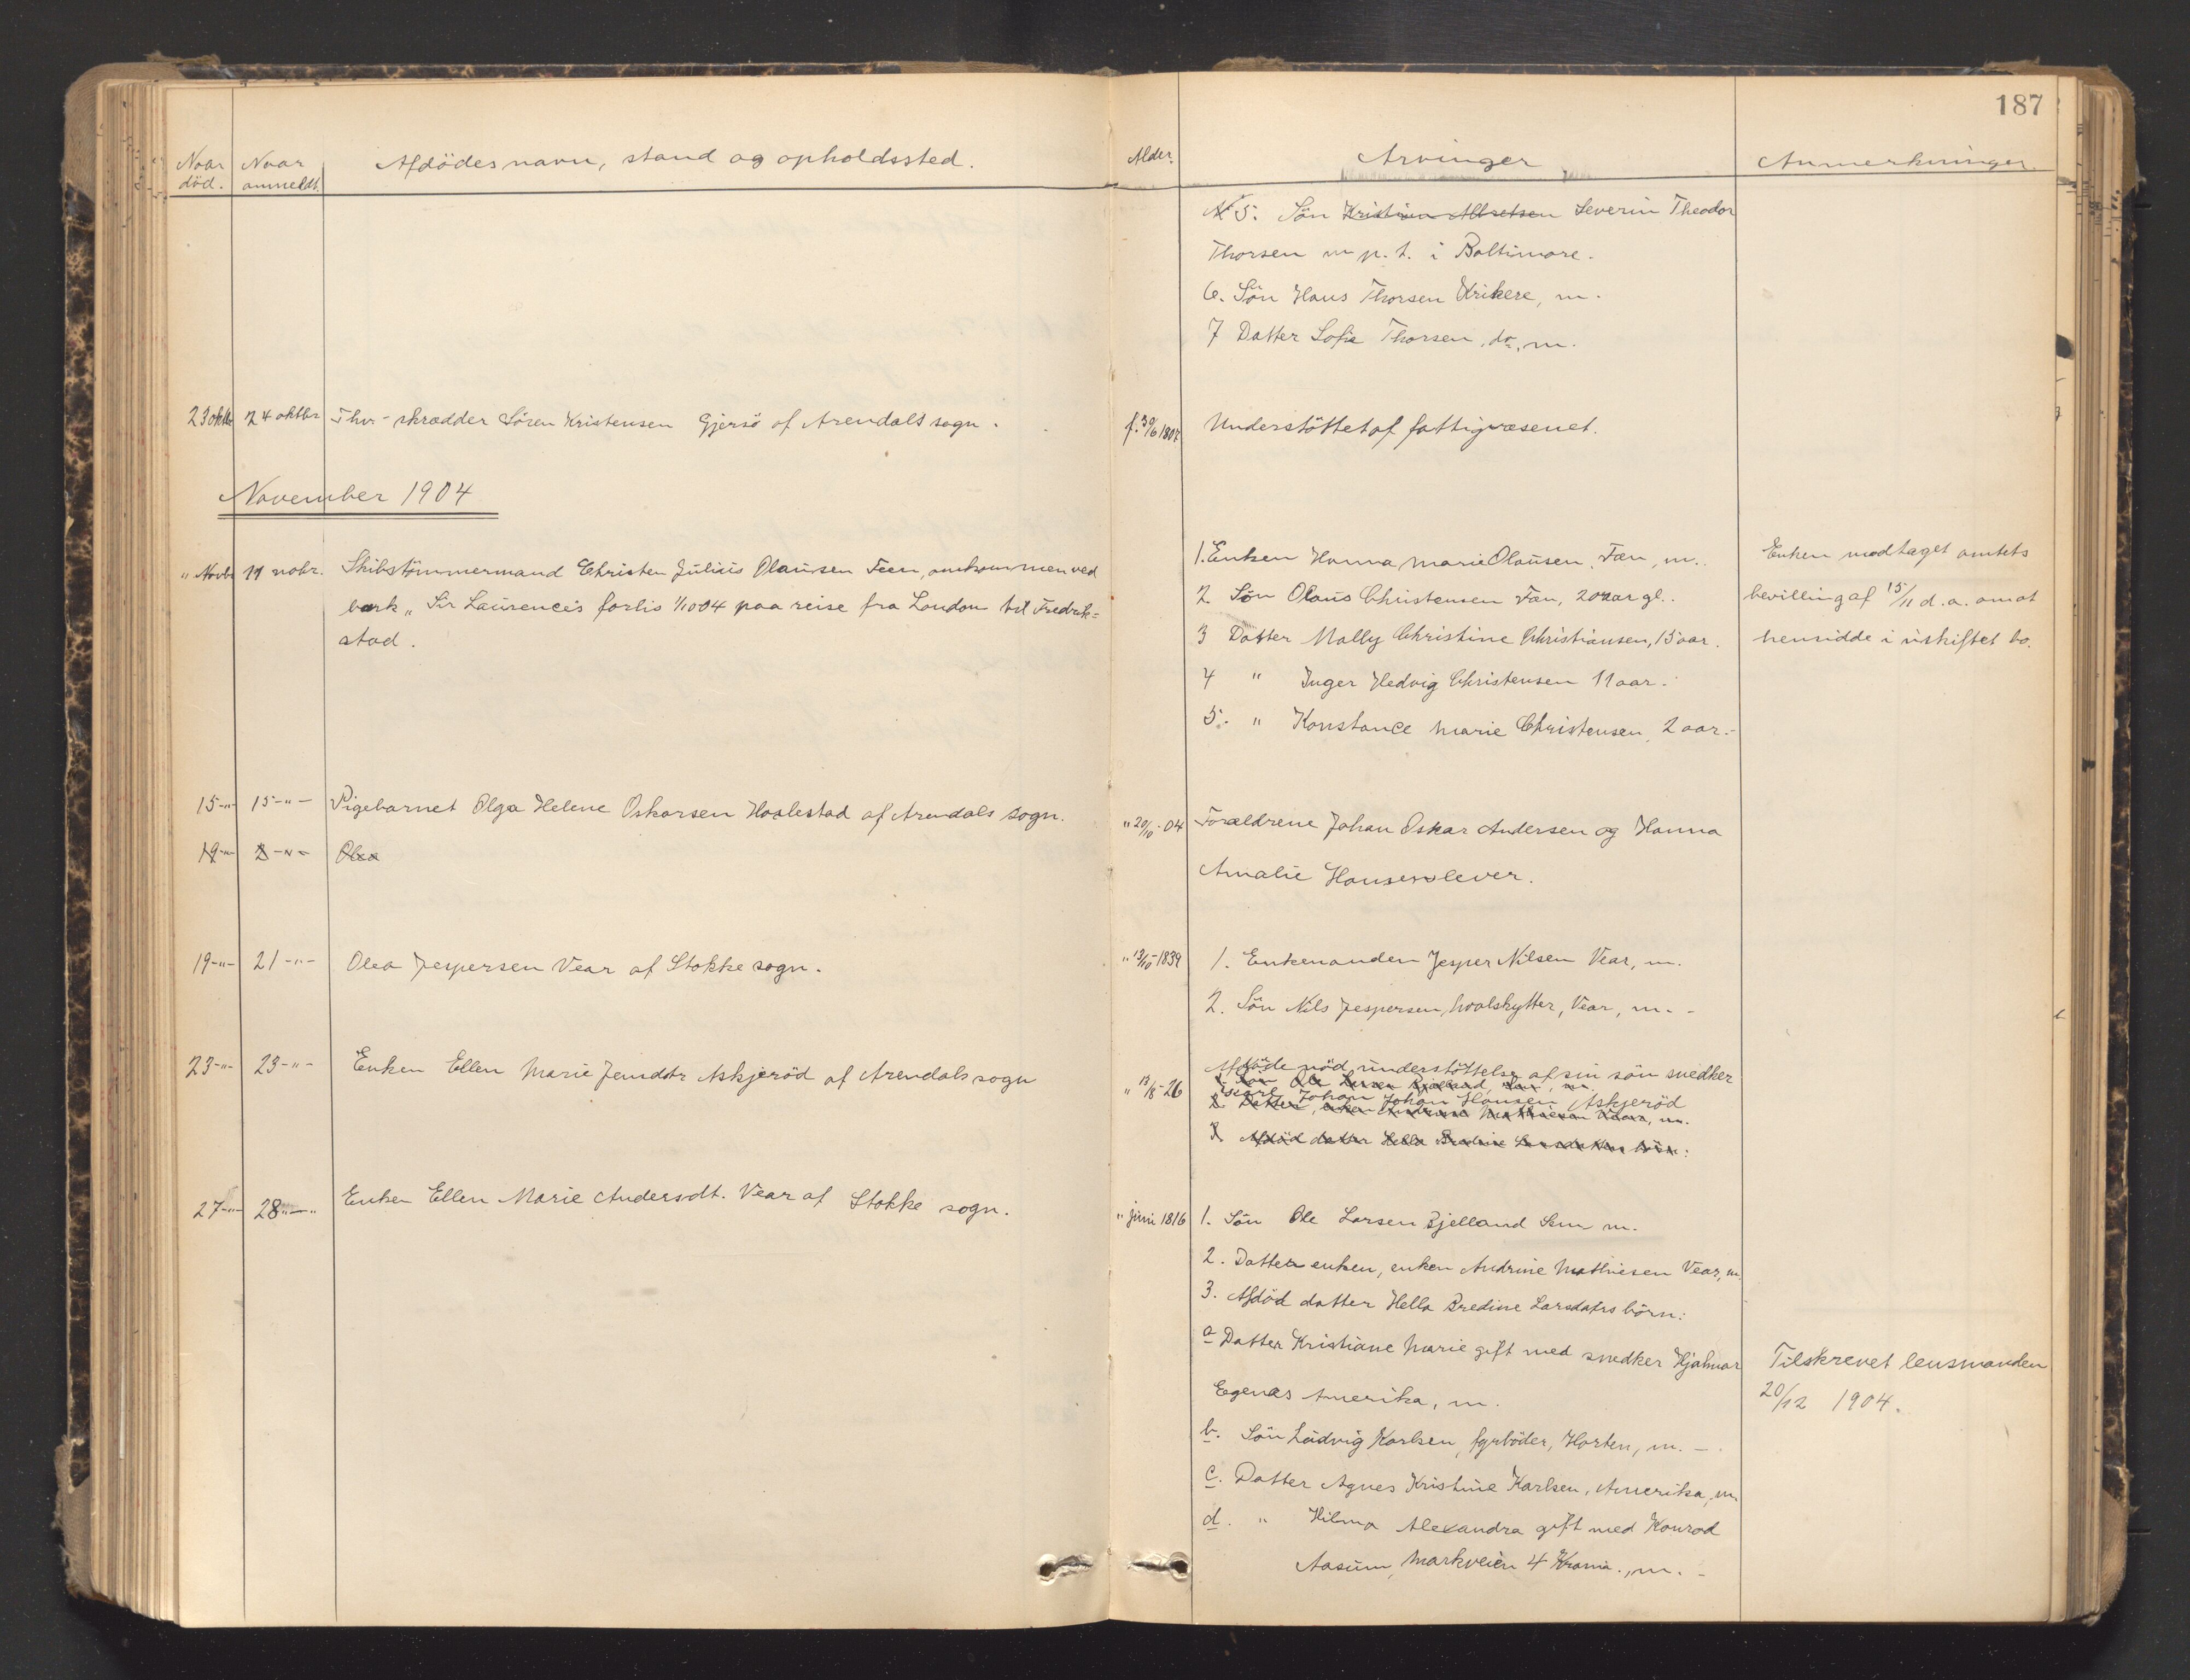 187
Naar død. Naar anmeldt. Afdödes navn, stand og opholdssted. Alder. Arvinger Anmerkninger.
5. Sön Kristian Albretsen Severin Theodor
Thorsen m p. t. i Baltimore.
6. Sön Hans Thorsen Krikere, m.
7 Datter Sofie Thorsen, do, m.
23 oktbr 24 oktbr Fhv. skrædder Sören Kristensen Gjersö af Arendals sogn. f. 30/6 1807 Understöttet af fattigvæsenet.
November 1904
" Novbr 11 nobr. Skibstömmermand Christen Julius Olausen Feen, omkommen ved
bark " Sir Laurence's forlis 1/10 04 paa reise fra London til Fredrik=
stad.
1. Enken Hanna Marie Olausen, Fæn, m.
2. Sön Olaus Christensen Fæn, 20 aar gl.
3 Datter Mally Christine Christiansen, 15 aar.
4 " Inger Hedvig Christensen 11 aar.
5. " Konstance Marie Christensen, 2 aar.-
Enken medtaget amtets
bevilling af 15/11 d. a. om at
hensidde i uskiftet bo.
15-"- 15-"- Pigebarnet Olga Helene Oskarsen Haalestad af Arendals sogn. " 20/10-04 Forældrene Johan Oskar Andersen og Hanna
Amalie Hansen lever.
19-"- 2-"- Olea
19-"- 21-"- Olea Jespersen Vear af Stokke sogn. " 13/10-1839 1. Enkemanden Jesper Nilsen Vear, m.
2. Sön Nils Jespersen, hvalskytter, Vear, m.-
23-"- 23-"- Enken Ellen Marie Jemdtr Askjeröd af Arendals sogn " 13/8-26 Afdöde nöd understöttelse af sin sön snedker
1. Sön Ole Larsen Bjelland, Sem, m.
Johan Johan Hansen Askjeröd
2. Datter, enken Andrine Mathiesen Vear, m.
3 Afdöd datter Hella Bredine Larsdatters börn:
27-"- 28-"- Enken Ellen Marie Andersdt. Vear af Stokke sogn. " juni 1816 1. Sön Ole Larsen Bjelland Sem m.
2. Datter enken, enken Andrine Mathiesen Vear, m.
3. Afdöd datter Hella Bredine Larsdatrs börn:
a Datter Kristiane Marie gift med snedker Hjalmar
Egenæs Amerika, m.
b. Sön Ludvig Karlsen, fyrböder, Horten, m. -
c. Datter Agnes Kristine Karlsen, Amerika, m.
d. " Hilma Alexandra gift med Konrad
Aasum, Markveien 4 Krania., m. -
Tilskrevet lensmanden
20/12 1904.